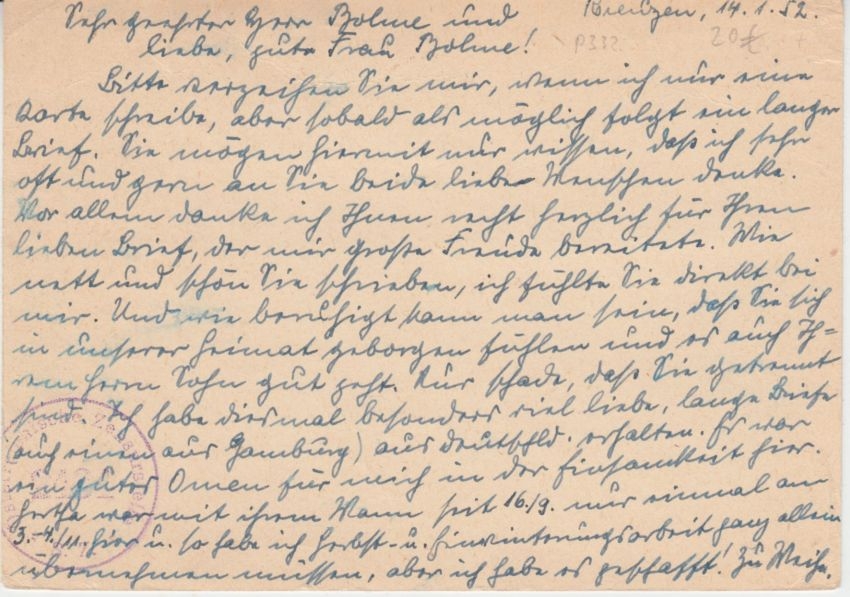 Sehr geehrter Herr Bolme und
Kreuzen, 14.1.52.
liebe, gute Frau Bolme!
P332
20
Bitte verzeihen Sie mir, wenn ich nur eine
Karte schreibe, aber sobald als möglich folgt ein langer
Brief. Sie mögen hiermit nur wissen, daß ich sehr
oft und gern an Sie beide liebe Menschen denke.
Vor allem danke ich Ihnen recht herzlich für Ihren
lieben Brief, der mir große Freude bereitete. Wie
nett und schön Sie schrieben, ich fühlte Sie direkt bei
mir. Und wie beruhigt kann man sein, daß Sie sich
in unserer Heimat geborgen fühlen und es auch Ih=
rem Herrn Sohn gut geht. Nur schade, daß Sie getrennt
sind. Ich habe diesmal besonders viel liebe, lange Briefe
(auch einen aus Hamburg) aus Deutschld. erhalten. Es war
ein gutes Omen für mich in der Einsamkeit hier.
Hertha war mit ihrem Mann seit 16./9. nur einmal am
3.-4./11. hier u. so habe ich Herbst- u. Einwinterungsarbeit ganz allein
übernehmen müssen, aber ich habe es geschafft! Zu Weihn.